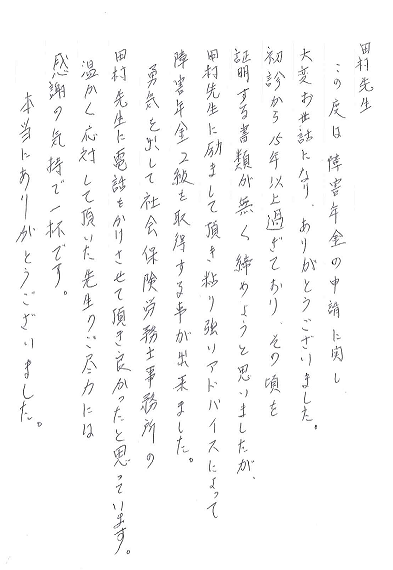 田村先生
この度は障害年金の申請に関し
大変お世話になり、ありがとうございました。
初診から15年以上過ぎており、その頃を
証明する書類が無く締めようと思いましたが、
田村先生に励まして頂き粘り強いアドバイスによって
障害年金2級を取得する事が出来ました。
勇気を出して社会保険労務士事務所の
田村先生に電話をかけさせて頂き良かったと思っています。
温かく応対して頂いた先生のご尽力には
感謝の気持で一杯です。
本当にありがとうございました。